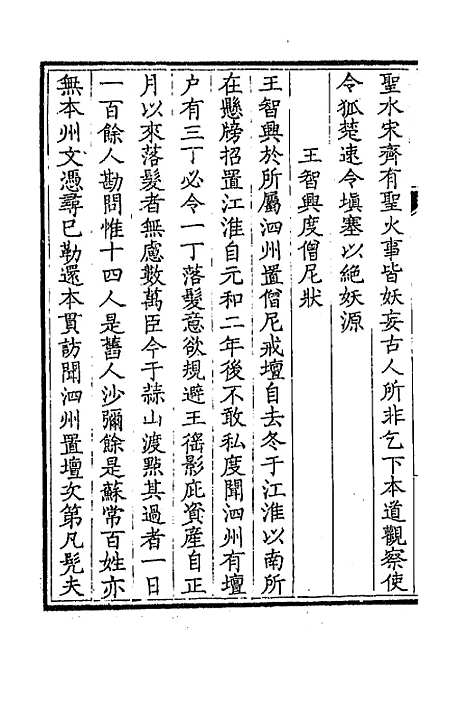 聖水宋齊有聖火事皆妖妄古人所非乞下本道觀察使
令狐楚速令塡塞以絶妖源
王智興度僧尼狀
王智興於所屬泗州置僧尼戒壇自去冬于江淮以南所
在懸牓招置江淮自元和二年後不敢私度聞泗州有壇
户有三丁必令一丁落髮意欲規避王徭影庇資産自正
月以來落髮者無慮數萬臣今于蒜山渡㸃其過者一日
一百餘人勘問惟十四人是舊人沙彌餘是蘇常百姓亦
無本州文憑尋已勒還本貫訪聞泗州置壇次第凡髡夫